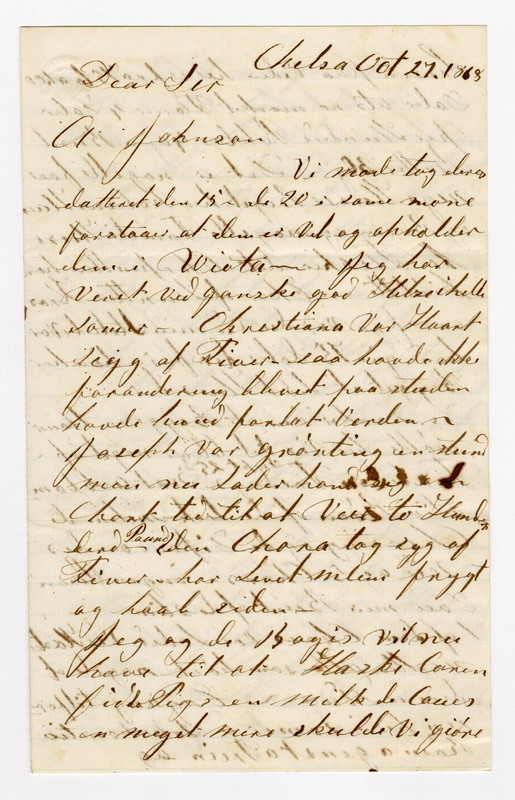 Chelsa Oct 27. 1868
Dear Sir
A Johnson
Vi mode tog deres
datteret den 15 de 20 i same mone
forstaaer at dem er Vel og opholder
dem i Wiota — Jeg har
Veret ved ganske god
— Christiana Var Haart
syg af Fiver saa havde ikke
forandering blivet paa studen
havde hund forlat Verden
Joseph Var Grønting en stund
men nu Lader hand sig
hart tid til at Veie to Hund
derd Paund den Chara tog syg af
Fiver har Levet mlem frygt
og haab siden —
Jeg og de Bogis vil nu
have til at Harke Caren
fide Pigs en milk de Caues
en meget mere skulde Vi giøre